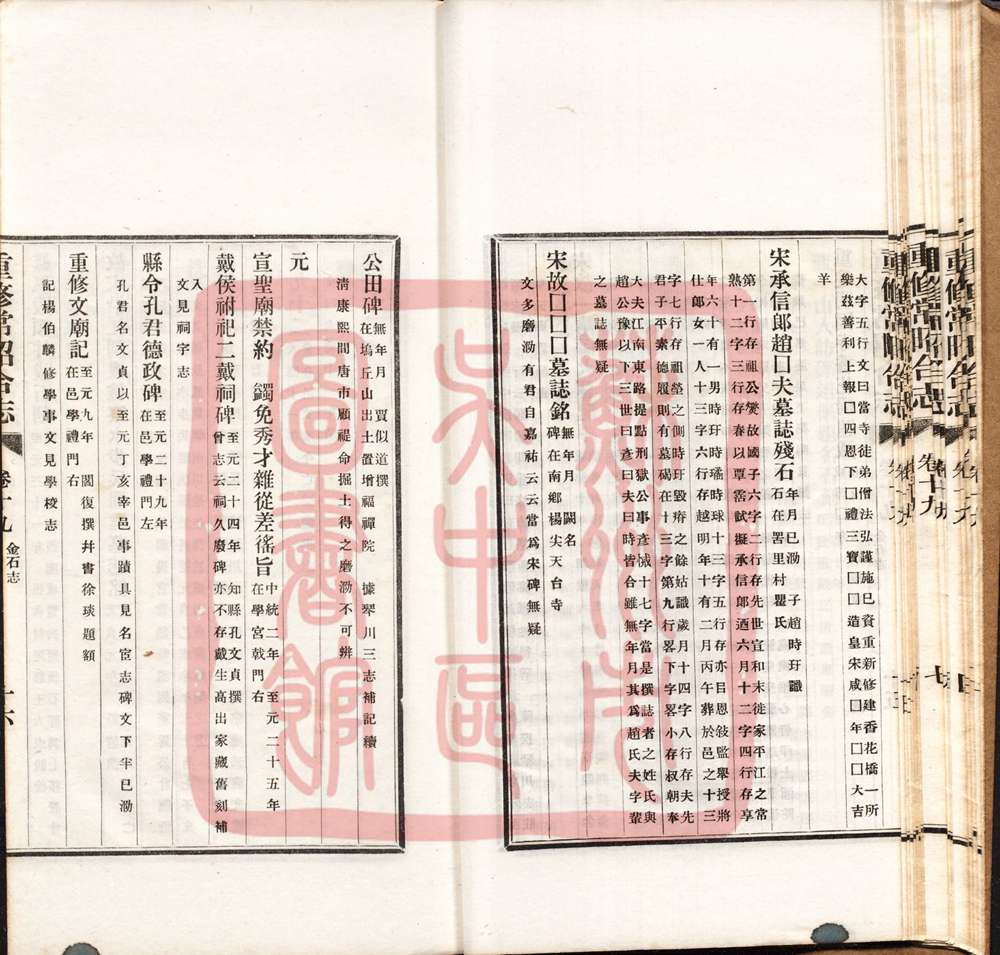 大字五行文曰當寺徒弟僧法弘謹施巳資重新修建香花橋一所
樂茲善利上報囗四恩下囗禮三寶囗囗造皇宋咸囗年囗囗大吉
羊
宋承信郎趙囗夫墓誌殘石
年月巳泐 子趙時玨識
石在罟里村瞿氏
第一行存祖公㷀故國子六字二行存先世宣和末徙家平江之常
熟十二字三行存春以覃霈試擬承信郎酒六月十二字四行存享
年六十有一男時玨時璚時球十三字五行存亦目恩敍監舉授將
仕郎女一人十三字六行存越明年十有二月丙午葬於邑之十三
字七行存祖塋之側時玨毀瘠之餘姑識歲月十四字八行存夫先
君子平素德履則有墓碣在十三字第九行畧下字畧小存叔朝奉
大夫江南東路提點刑獄公事彥悈十七字當是撰誌者之姓氏與
趙公豫以下三世曰彥曰夫曰時皆合雖無年月其爲趙氏夫字輩
之墓誌無疑
宋故囗囗囗墓誌銘
無年月 闕名
碑在南鄉楊尖天台寺
文多磨泐有君自嘉祐云云當爲宋碑無疑
公田碑
無年月 賈似道撰
在塢丘山出土置增福禪院 據琴川三志補記續
淸康熙間唐市顧禔命掘土得之磨泐不可辨
元
宣聖廟禁約 蠲免秀才雜從差徭旨
中統二年 至元二十五年
在學宮戟門右
戴侯祔祀二戴祠碑
至元二十四年 知縣孔文貞撰
曾志云祠久廢碑亦不存戴生高出家藏舊刻補
入
文見祠宇志
縣令孔君德政碑
至元二十九年
在邑學禮門左
孔君名文貞以至元丁亥宰邑事蹟具見名宦志碑文下半巳泐
重修文廟記
至元九年 閻復撰幷書徐琰題額
在邑學禮門右
記楊伯麟修學事文見學校志
重修常昭合志
卷十九
金石志
十六
重修常昭合志
卷十九
蘇州市吳中區圖書館